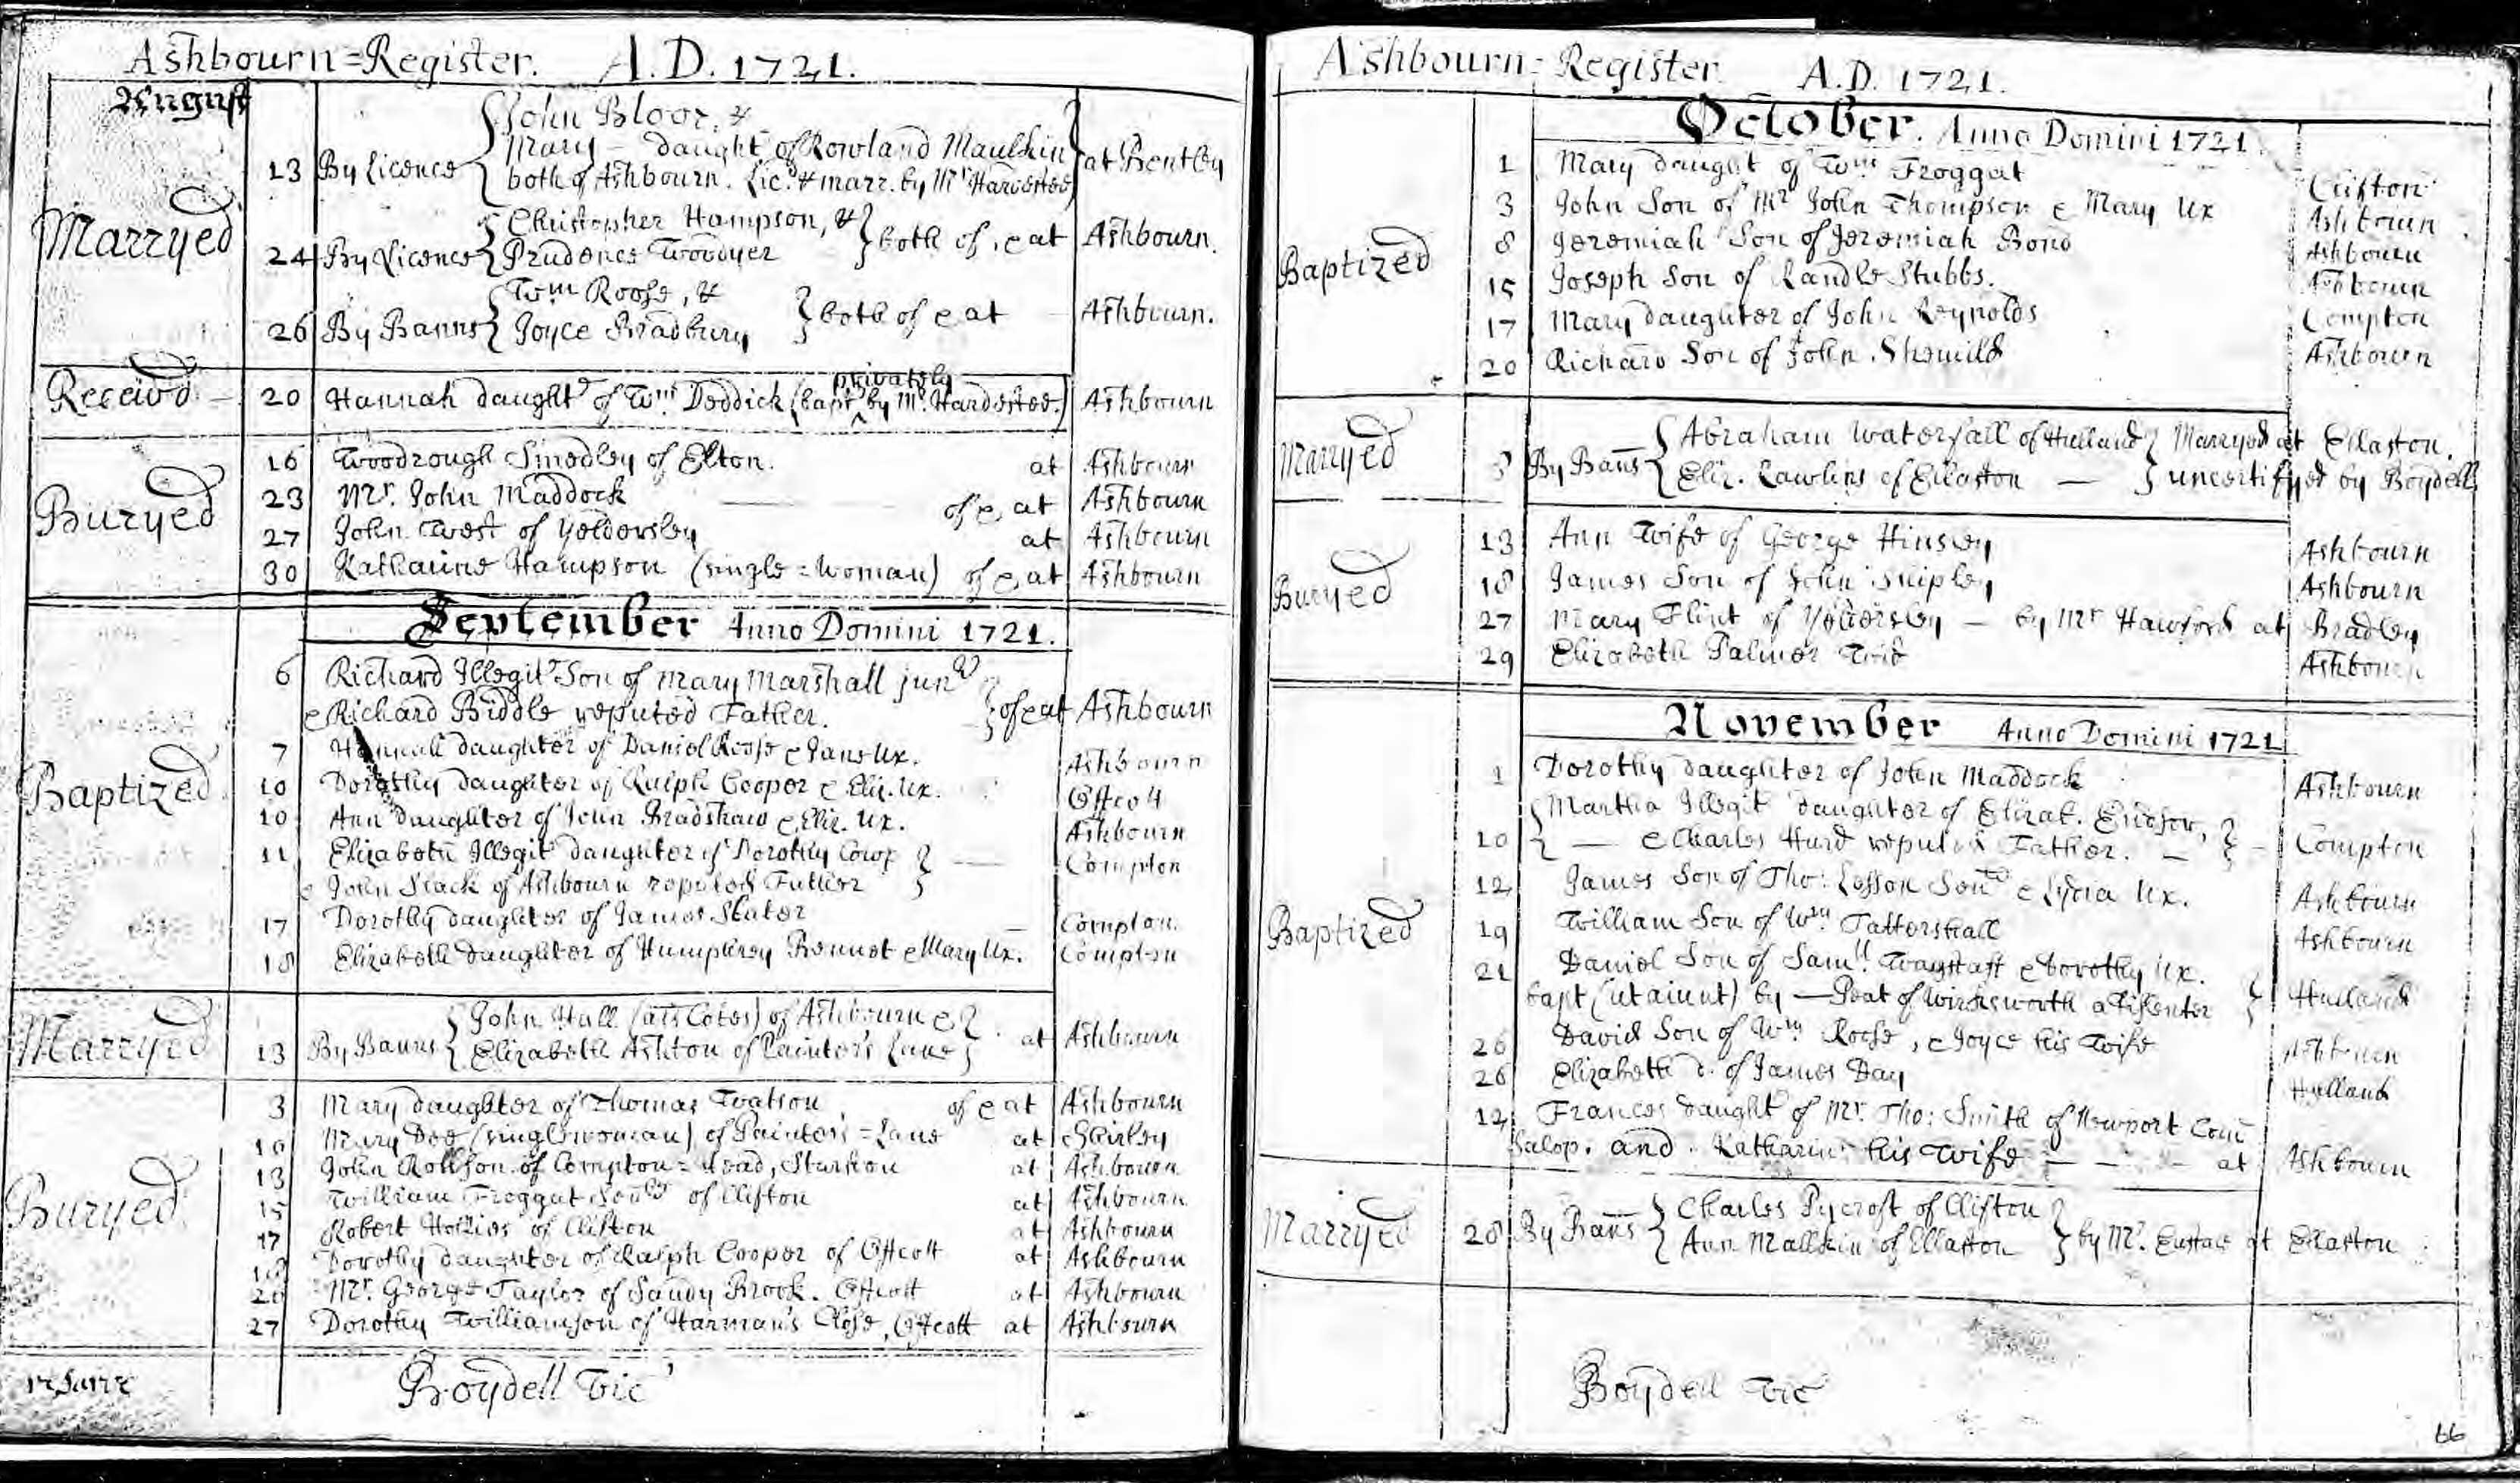 Ashbourn=Register. A.D. 1721.
August
Marryed
13 By Licence John Bloor, &
Mary — daught of Rowland Maulkin
both of Ashbourn. Lic. & marr. by Mr Hardestee at Bentley
24 By Licence Christopher Hampson, &
Prudence Woodyer both of, e at Ashbourn.
26 By Banns Wm Roose, &
Joyce Bradbury both of e at Ashbourn.
Receivd 20 Hannah daught of Wm Doddick (bapt privately by Mr. Hardestee.) Ashbourn
Buryed
16 Woodrough Smedley of Elton. at Ashbourn
23 Mr. John Maddock of e at Ashbourn
27 John West of Yoldersley at Ashbourn
30 Katharine Hampson (single=woman) of e at Ashbourn
September Anno Domini 1721.
Baptized
6 Richard Illegit Son of Mary Marshall junr
e Richard Biddle reputed Father. of e at Ashbourn
7 Hannah daughter of Daniel Roose e Jane Ux. Ashbourn
10 Dorothy daughter of Ralph Cooper e Eliz. Ux. Offcott
10 Ann daughter of John Bradshaw e Eliz. Ux. Ashbourn
11 Elizabeth Illegit daughter of Dorothy Compton
e John Slack of Ashbourn reputed Father
17 Dorothy daughter of James Slater — Compton.
18 Elizabeth daughter of Humphrey Bennet e Mary Ux. Compton
Marryed
13 By Banns John Hall (als Cotes) of Ashbourn e
Elizabeth Ashton of Painter's Lane at Ashbourn
Buryed
3 Mary daughter of Thomas Watson of e at Ashbourn
10 Mary Doe (singlewoman) of Painters=Lane at Shirley
13 John Rollson of Compton= , Sturston at Ashbourn
15 William Froggat Senr of Clifton at Ashbourn
17 Robert Hollies of Clifton at Ashbourn
18 Dorothy daughter of Ralph Cooper of Offcott at Ashbourn
20 Mr. George Taylor of Sandy Brook. Offcott at Ashbourn
27 Dorothy Williamson of Harman's Close, Offcott at Ashbourn
Boydell Vic
Ashbourn=Register A.D. 1721.
October. Anno Domini 1721
Baptized
1 Mary daught of Wm Froggat Clifton
3 John Son of Mr John Thompson e Mary Ux Ashbourn
8 Jeremiah Son of Jeremiah Bond Ashbourn
15 Joseph Son of Randle Stubbs. Ashbourn
17 Mary daughter of John Reynolds Compton
20 Richard Son of John Shewild Ashbourn
Marryed
3 By Bans Abraham Waterfall of Hulland Marryed at Ellaston.
Eliz. Rawlins of Ellaston — uncertifyed by Boydell
Buryed
13 Ann Wife of George Hinsley Ashbourn
18 James Son of John Shipley Ashbourn
27 Mary Flint of Yoldersley — by Mr Hawford at Bradley
29 Elizabeth Palmer Wid Ashbourn
November Anno Domini 1721
Baptized
1 Dorothy daughter of John Maddock Ashbourn
Martha Illegit daughter of Elizab.
10 — e Charles Hurd reputed Father. — Compton
12 James Son of Tho: e Lydia Ux. Ashbourn
19 William Son of Wm Tattershall Ashbourn
21 Daniel Son of Samll Wagstaff e Dorothy Ux.
bapt (ut aiunt) by — Peat of Wirksworth a Disenter Hulland
26 David Son of Wm Roose, e Joyce his Wife Ashbourn
26 Elizabeth d. of James Day Hulland
12 Frances daught of Mr. Tho: Smith of Newport Com
Salop. and Katharin his Wife — — — at Ashbourn
Marryed
28 By Bans Charles Pycroft of Clifton
Ann Mallkin of Ellaston by Mr. Eustace at Ellaston
Boydell Vic
66